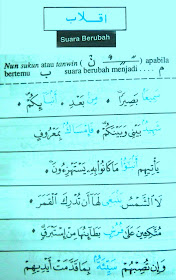 اقلاب
Suara Berubah
Nun sukun atau tanwin ( نْ ـًـٍـٌ ) apabila
bertemu ب suara berubah menjadi .... م
سَمِيعًا بَصِيرًا • مِنْ بَعْدِ • أَنْبَأَكُمْ •
شَهِيدٌ بَيْنِي وَبَيْنَكُمْ • فَإِمْسَاكٌ بِمَعْرُوفٍ
يَأْتِيهِمْ أَنْبَاءُ مَا كَانُوا بِهِ يَسْتَهْزِءُونَ •
لَا الشَّمْسُ يَنْبَغِي لَهَا أَنْ تُدْرِكَ الْقَمَرَ •
مُتَّكِئِينَ عَلَى فُرُشٍ بَطَائِنُهَا مِنْ إِسْتَبْرَقٍ •
وَإِنْ تُصِبْهُمْ سَيِّئَةٌ بِمَا قَدَّمَتْ أَيْدِيهِمْ